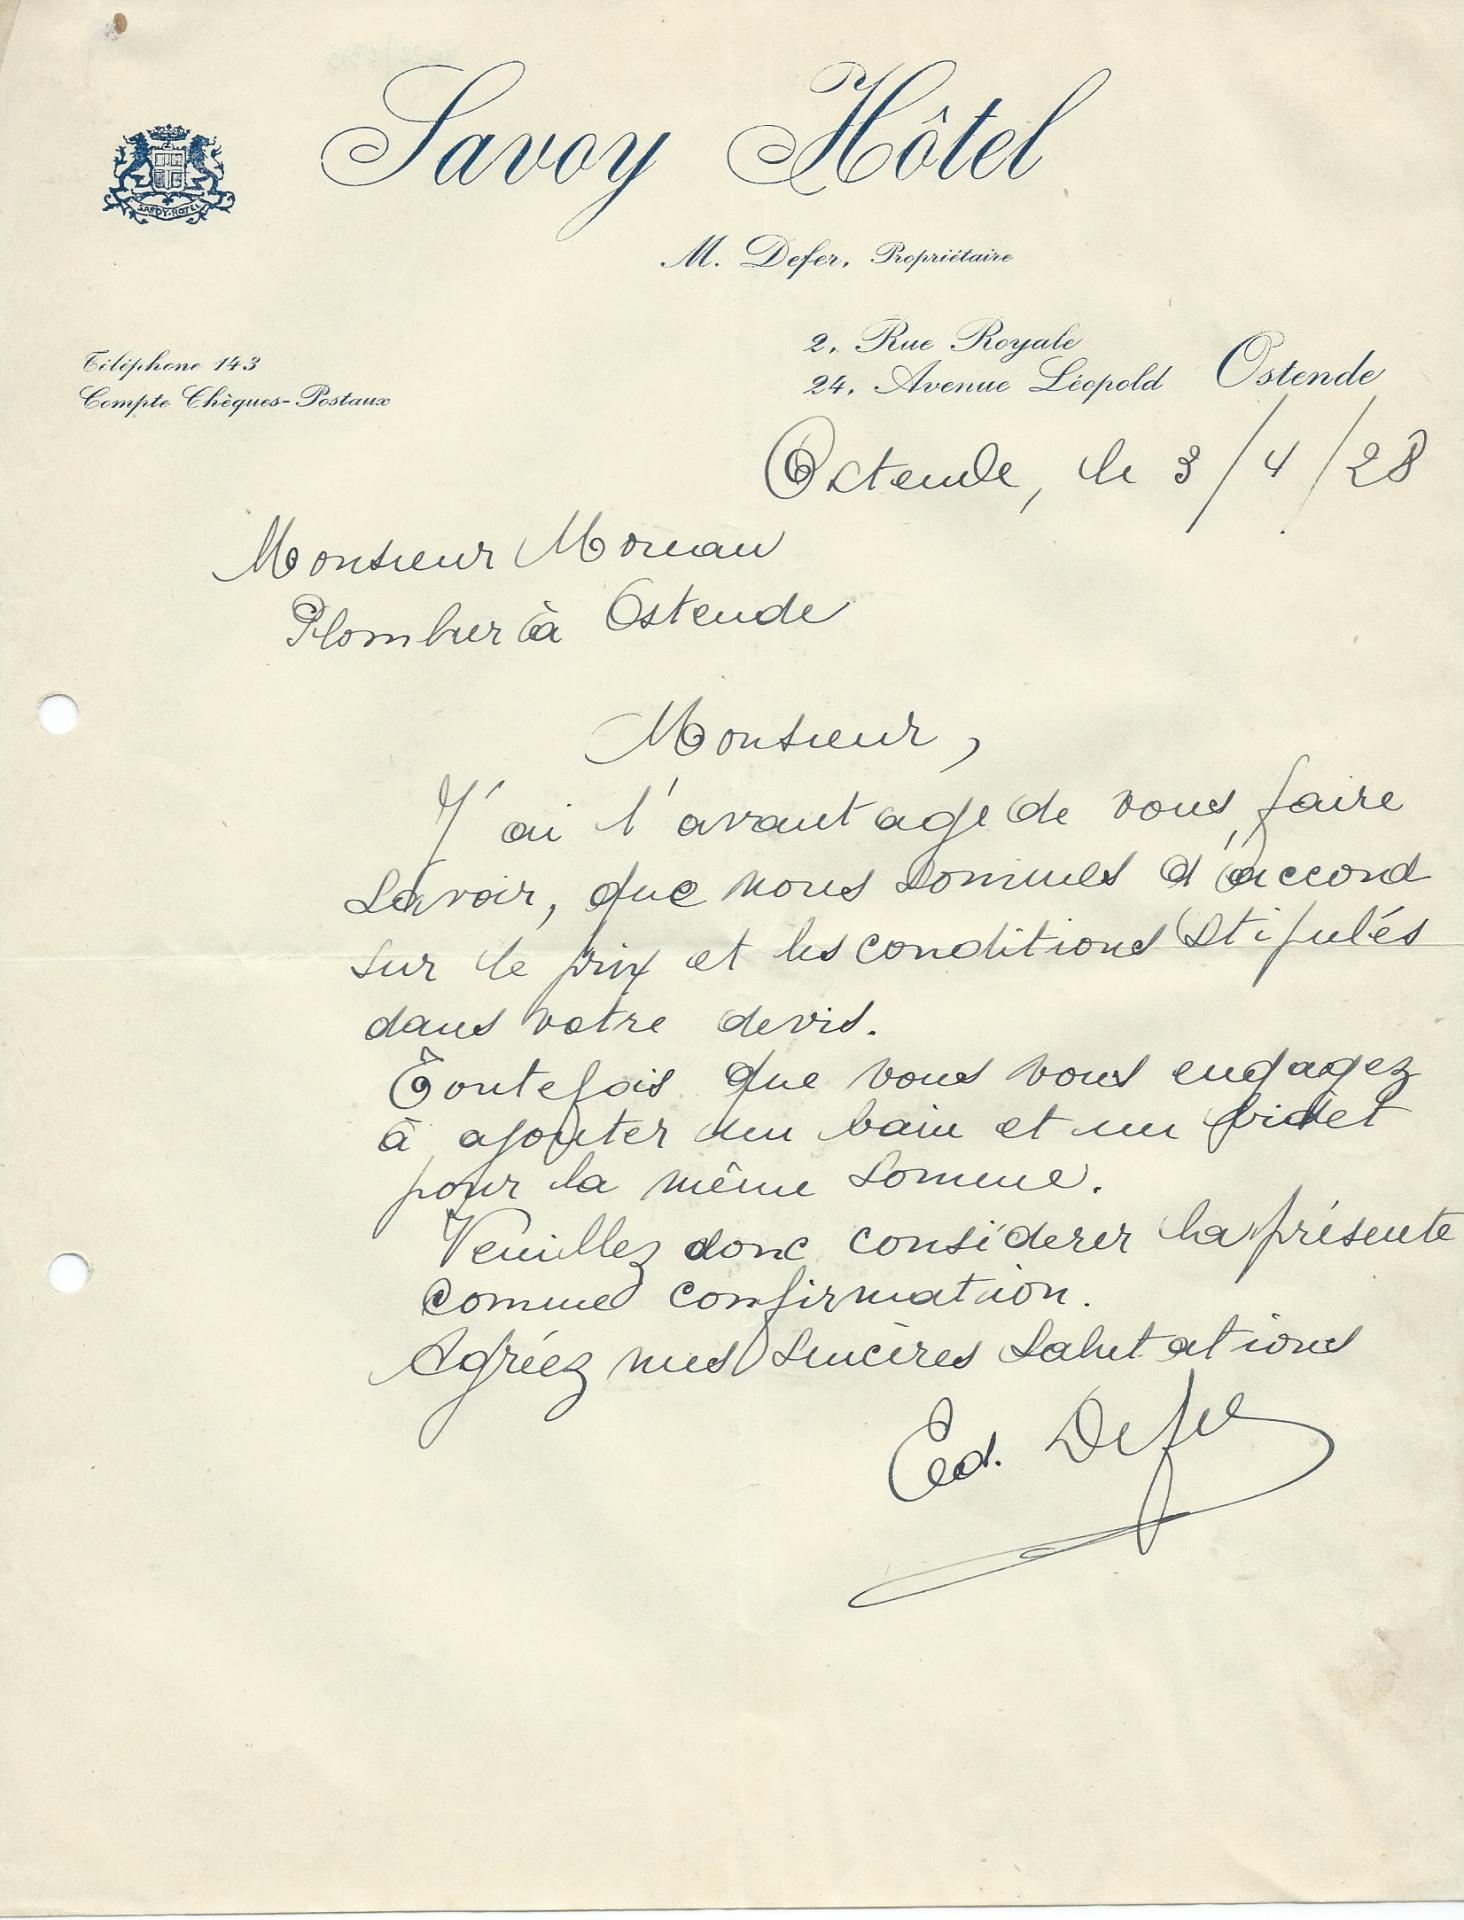 Savoy Hôtel
SAVOY-HOTEL
M. Defer, Propriétaire
Téléphone 143
Compte Chèques-Postaux
2, Rue Royale
24, Avenue Léopold Ostende
Ostende, le 3/4/28
Monsieur Moreau
Plombier à Ostende
Monsieur,
J'ai l'avantage de vous faire
savoir, que nous sommes d'accord
sur le prix et les conditions stipulés
dans votre devis.
Toutefois que vous vous engagez
à ajouter un bain et un bidet
pour la même somme.
Veuillez donc considerer la présente
comme confirmation.
Agréez mes sincères salutations
Ed. Defer